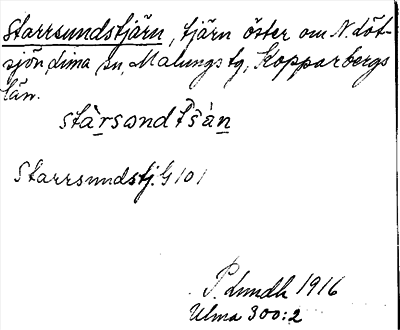 Starrsundstjärn, tjärn öster om N. Löt-
sjön, Lima sn, Malungs tg, Kopparbergs
län.
Starrsundstj. G 101
P. Lundh 1916
Ulma 300:2